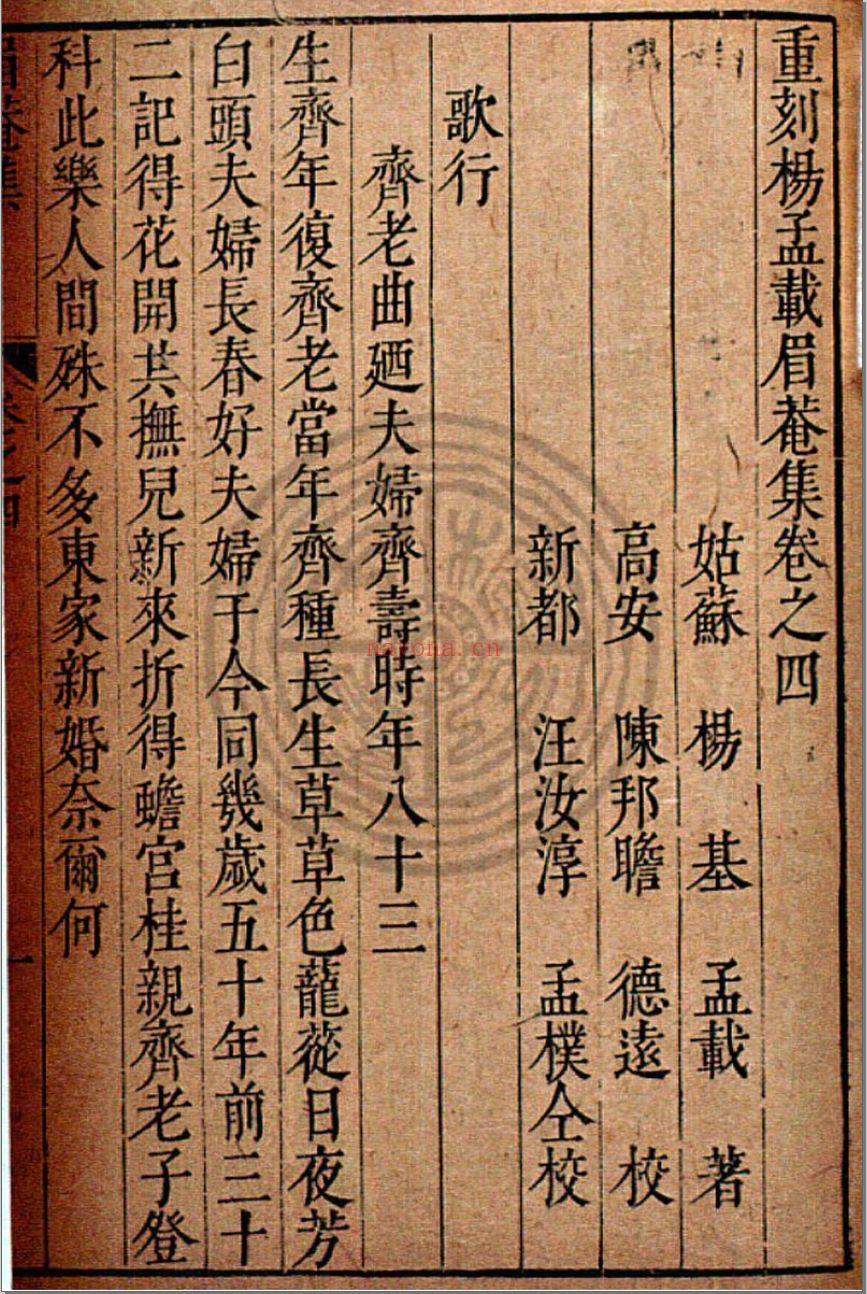 重刻楊孟載眉菴集卷之四
姑蘇 楊 基 孟載 著
高安 陳邦瞻 德遠 校
新都 汪汝淳 孟樸仝校
歌行
齊老曲廼夫婦齊壽時年八十三
生齊年復齊老當年齊種長生草草色蘢蓯日夜芳
白頭夫婦長春好夫婦于今同幾歲五十年前三十
二記得花開共撫兒新來折得蟾宮桂親齊老子登
科此樂人間殊不多東家新婚奈爾何
眉菴集
卷之四
一
naroma.cn